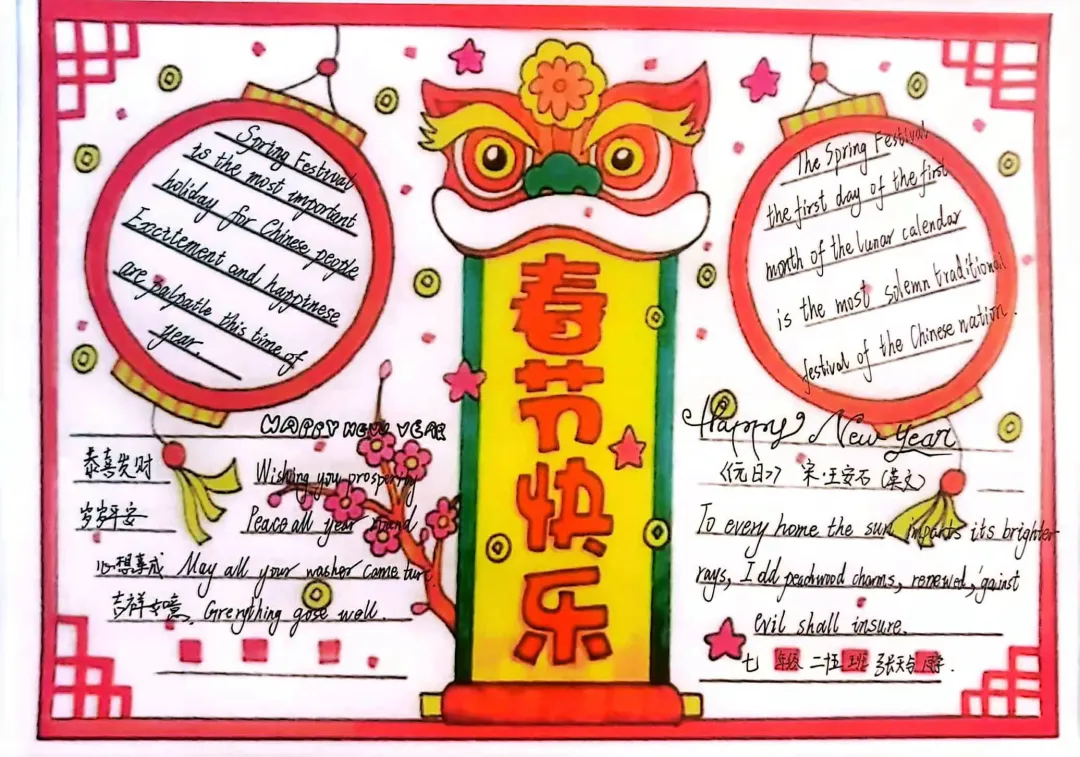 Spring Festival
is the most important
holiday for Chinese people
Excitement and happinese
are palpable this time of
year.
春节快乐
The Spring Festival
the first day of the first
month of the lunar calendar
is the most solemn traditional
festival of the Chinese nation.
HAPPY NEW YEAR
恭喜发财 Wishing you prosperity
岁岁平安 Peace all year round
心想事成 May all your washer come ture
吉祥 Grerything gose well.
Happy New Year
《元日》 宋·王安石(英文)
To every home the sun imparts its brighter
rays, I dd peachwood charms, renewed, 'gainst
evil shall insure.
七年级 二 班 张天